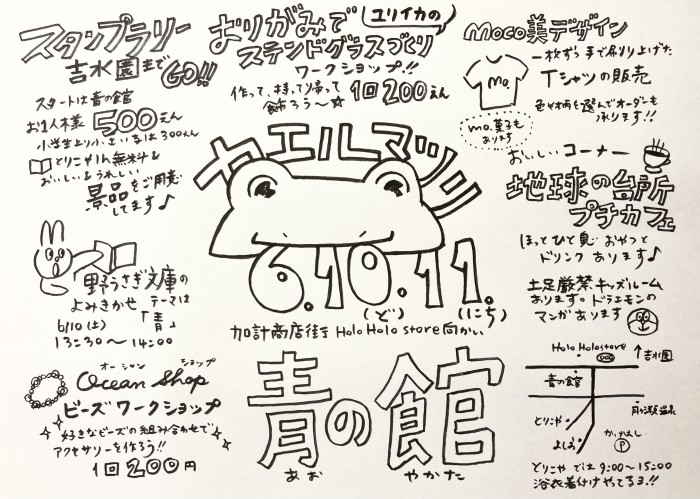 スタンプラリー
吉水園まで
GO!!
スタートは青の館
お1人様 500えん
小学生より小さい方は300えん
とりこや1ハイ無料&
おいしい&うれしい
景品をご用意
してます♪
おりがみで
ユリイカの
ステンドグラスづくり
ワークショップ!!
作って、持って帰って
飾ろう〜☆ 1回200えん
Moco美デザイン
一枚ずつ手で刷り上げた
Tシャツの販売
mo.
色や柄も選んでオーダーも
承ります!!
mo.菓子も
あります
カエルマツリ
6.10.11.
(ど) (にち)
加計商店街 Holo Holo store 向かい
青の館
あお やかた
おいしいコーナー
地球の台所
プチカフェ
ほっとひと息。おやつと
ドリンクあります♪
土足厳禁キッズルーム
あります。ドラえモンの
マンガあります
野うさぎ文庫の
よみきかせ テーマは
「青」
6/10(土)
13:30〜14:00
オーシャン ショップ
Ocean Shop
ビーズワークショップ
好きなビーズの組み合わせで
アクセサリーを作ろう!!
1回200円
Holo Holo store
↑吉水園
青の館
月ヶ瀬温泉
とりこや
よしお
P
とりこやでは9:00〜15:00
浴衣着付けやってるヨ!!